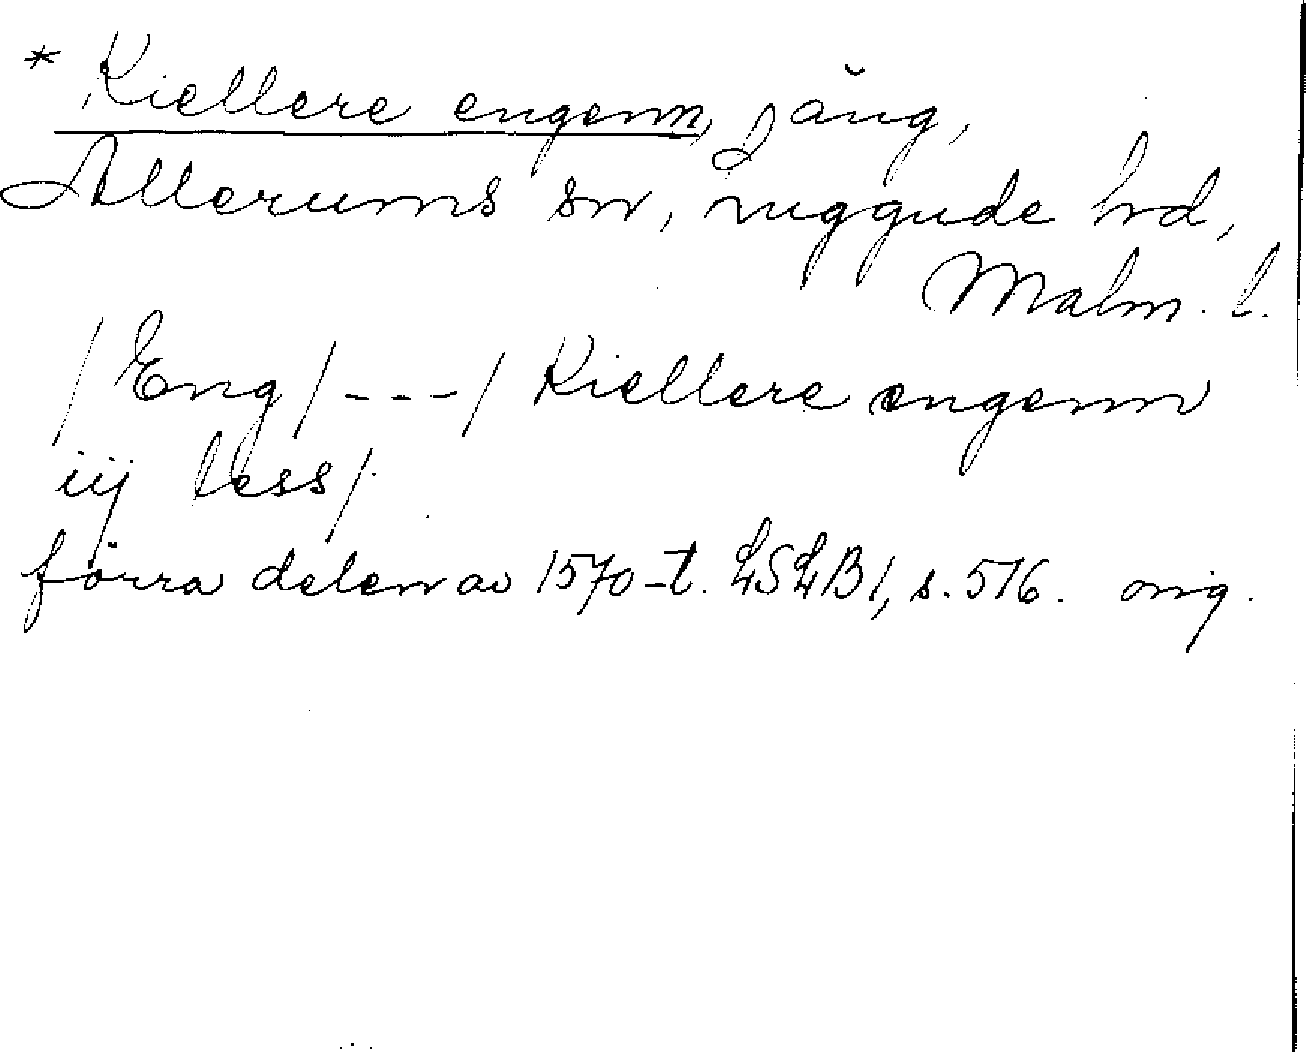 * Kiellere engenn, f äng,
Allerums sn, Luggude hrd,
Malm. l.
/Eng/---/ Kiellere engenn
iij less/.
förra delen av 1570-t. LSLB I, s. 516. orig.